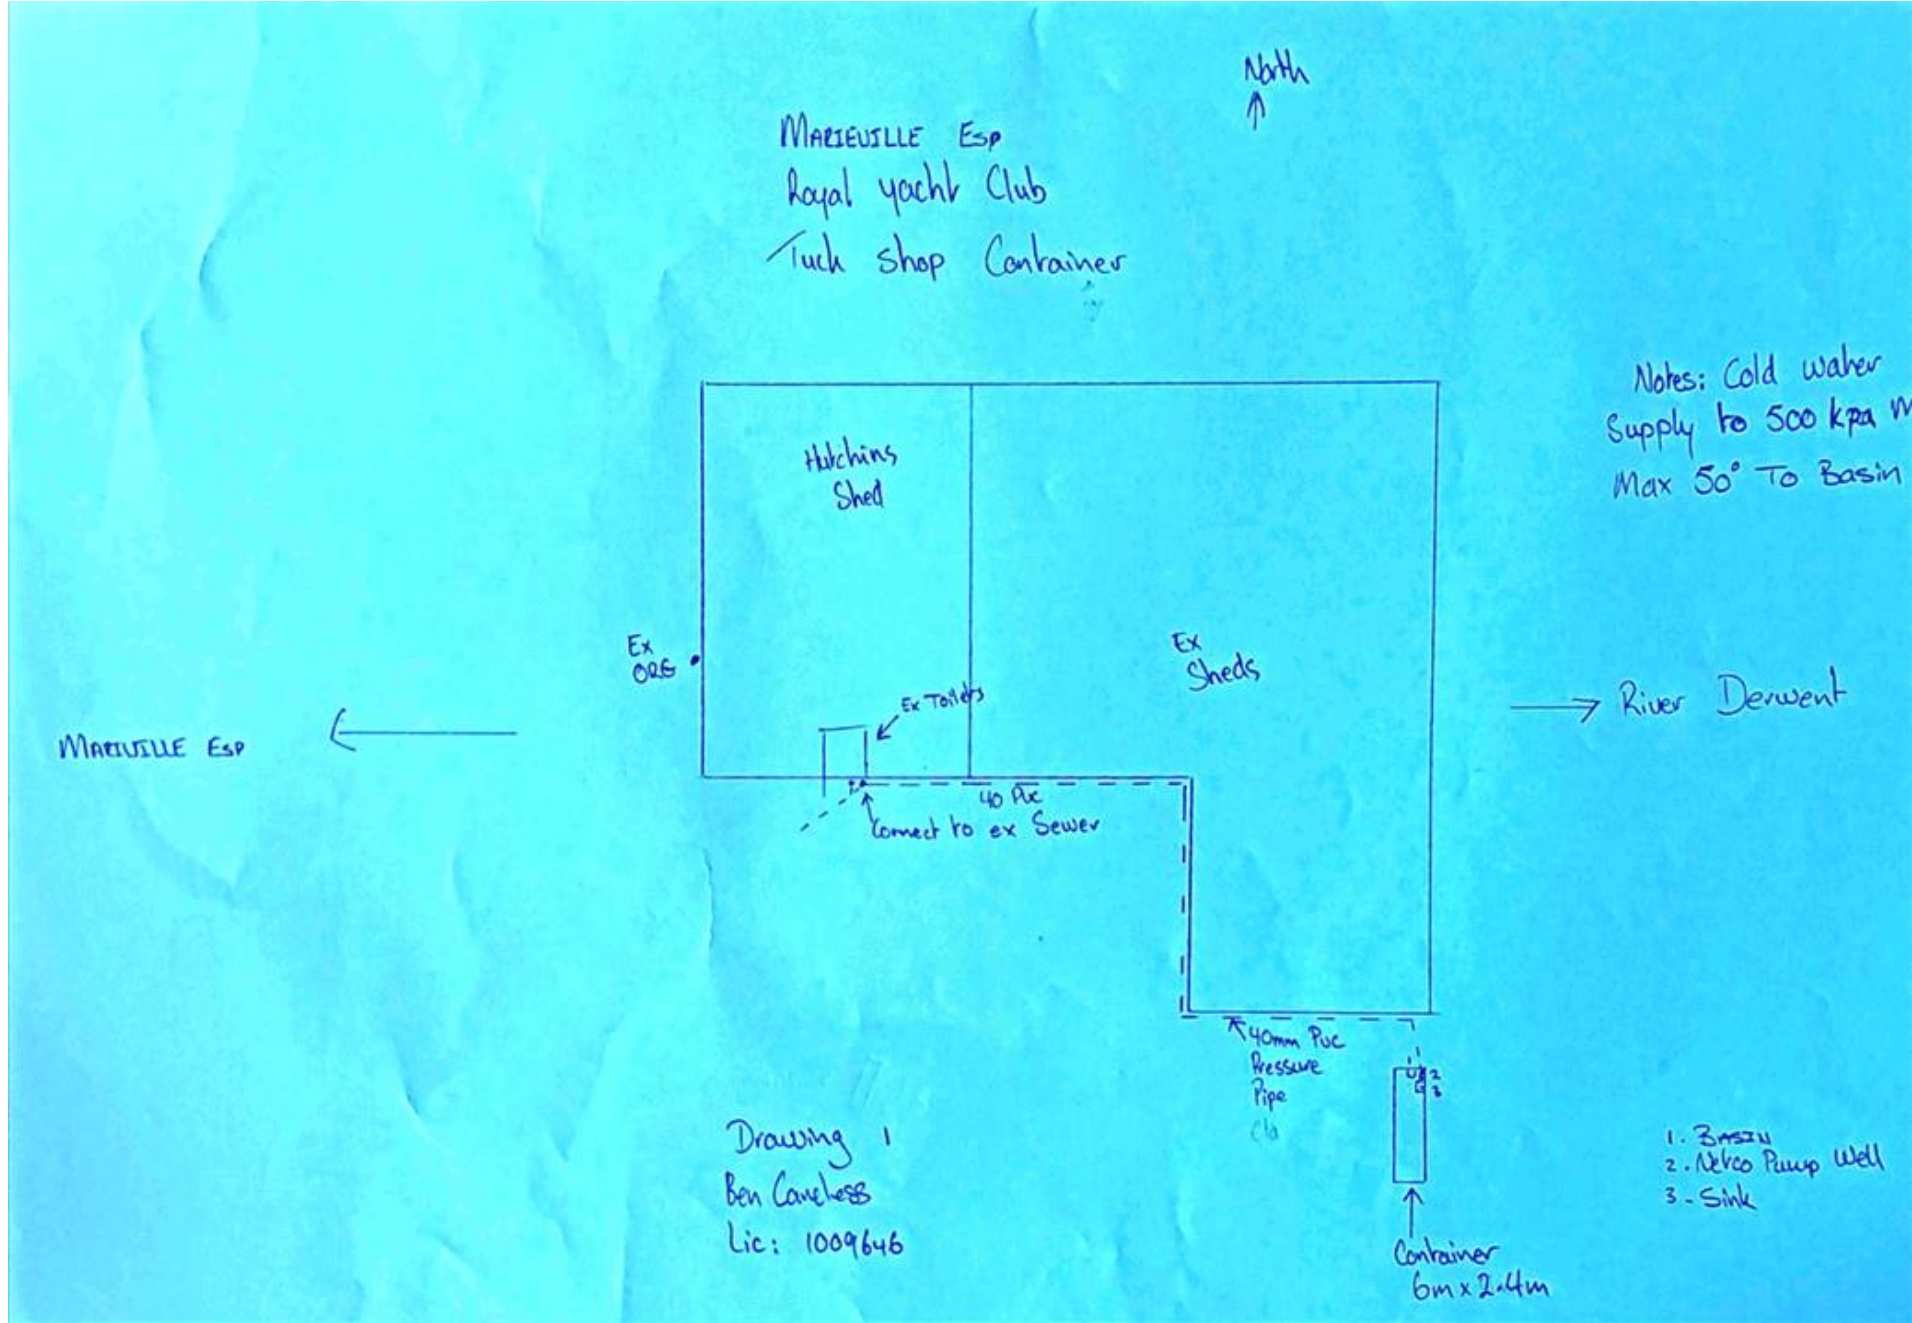 North
↑
MARIEVILLE Esp
Royal yacht Club
Tuck Shop Container
Notes: Cold water
Supply to 500 kpa M
Max 50° To Basin
Hutchins
Shed
Ex
ORG
Ex
Sheds
Ex Toilets
→ River Derwent
MARIVILLE Esp ←
40 Pvc
Connect to ex Sewer
40mm Pvc
Pressure
Pipe
1
2
3
Drawing 1
Ben
Lic: 1009646
1. BASIN
2. Pump Well
3 - Sink
Container
6m x 2.4m